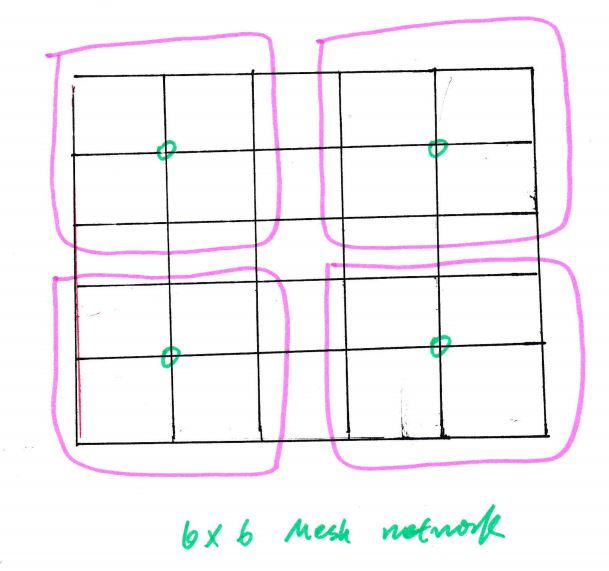 6x6 Mesh network